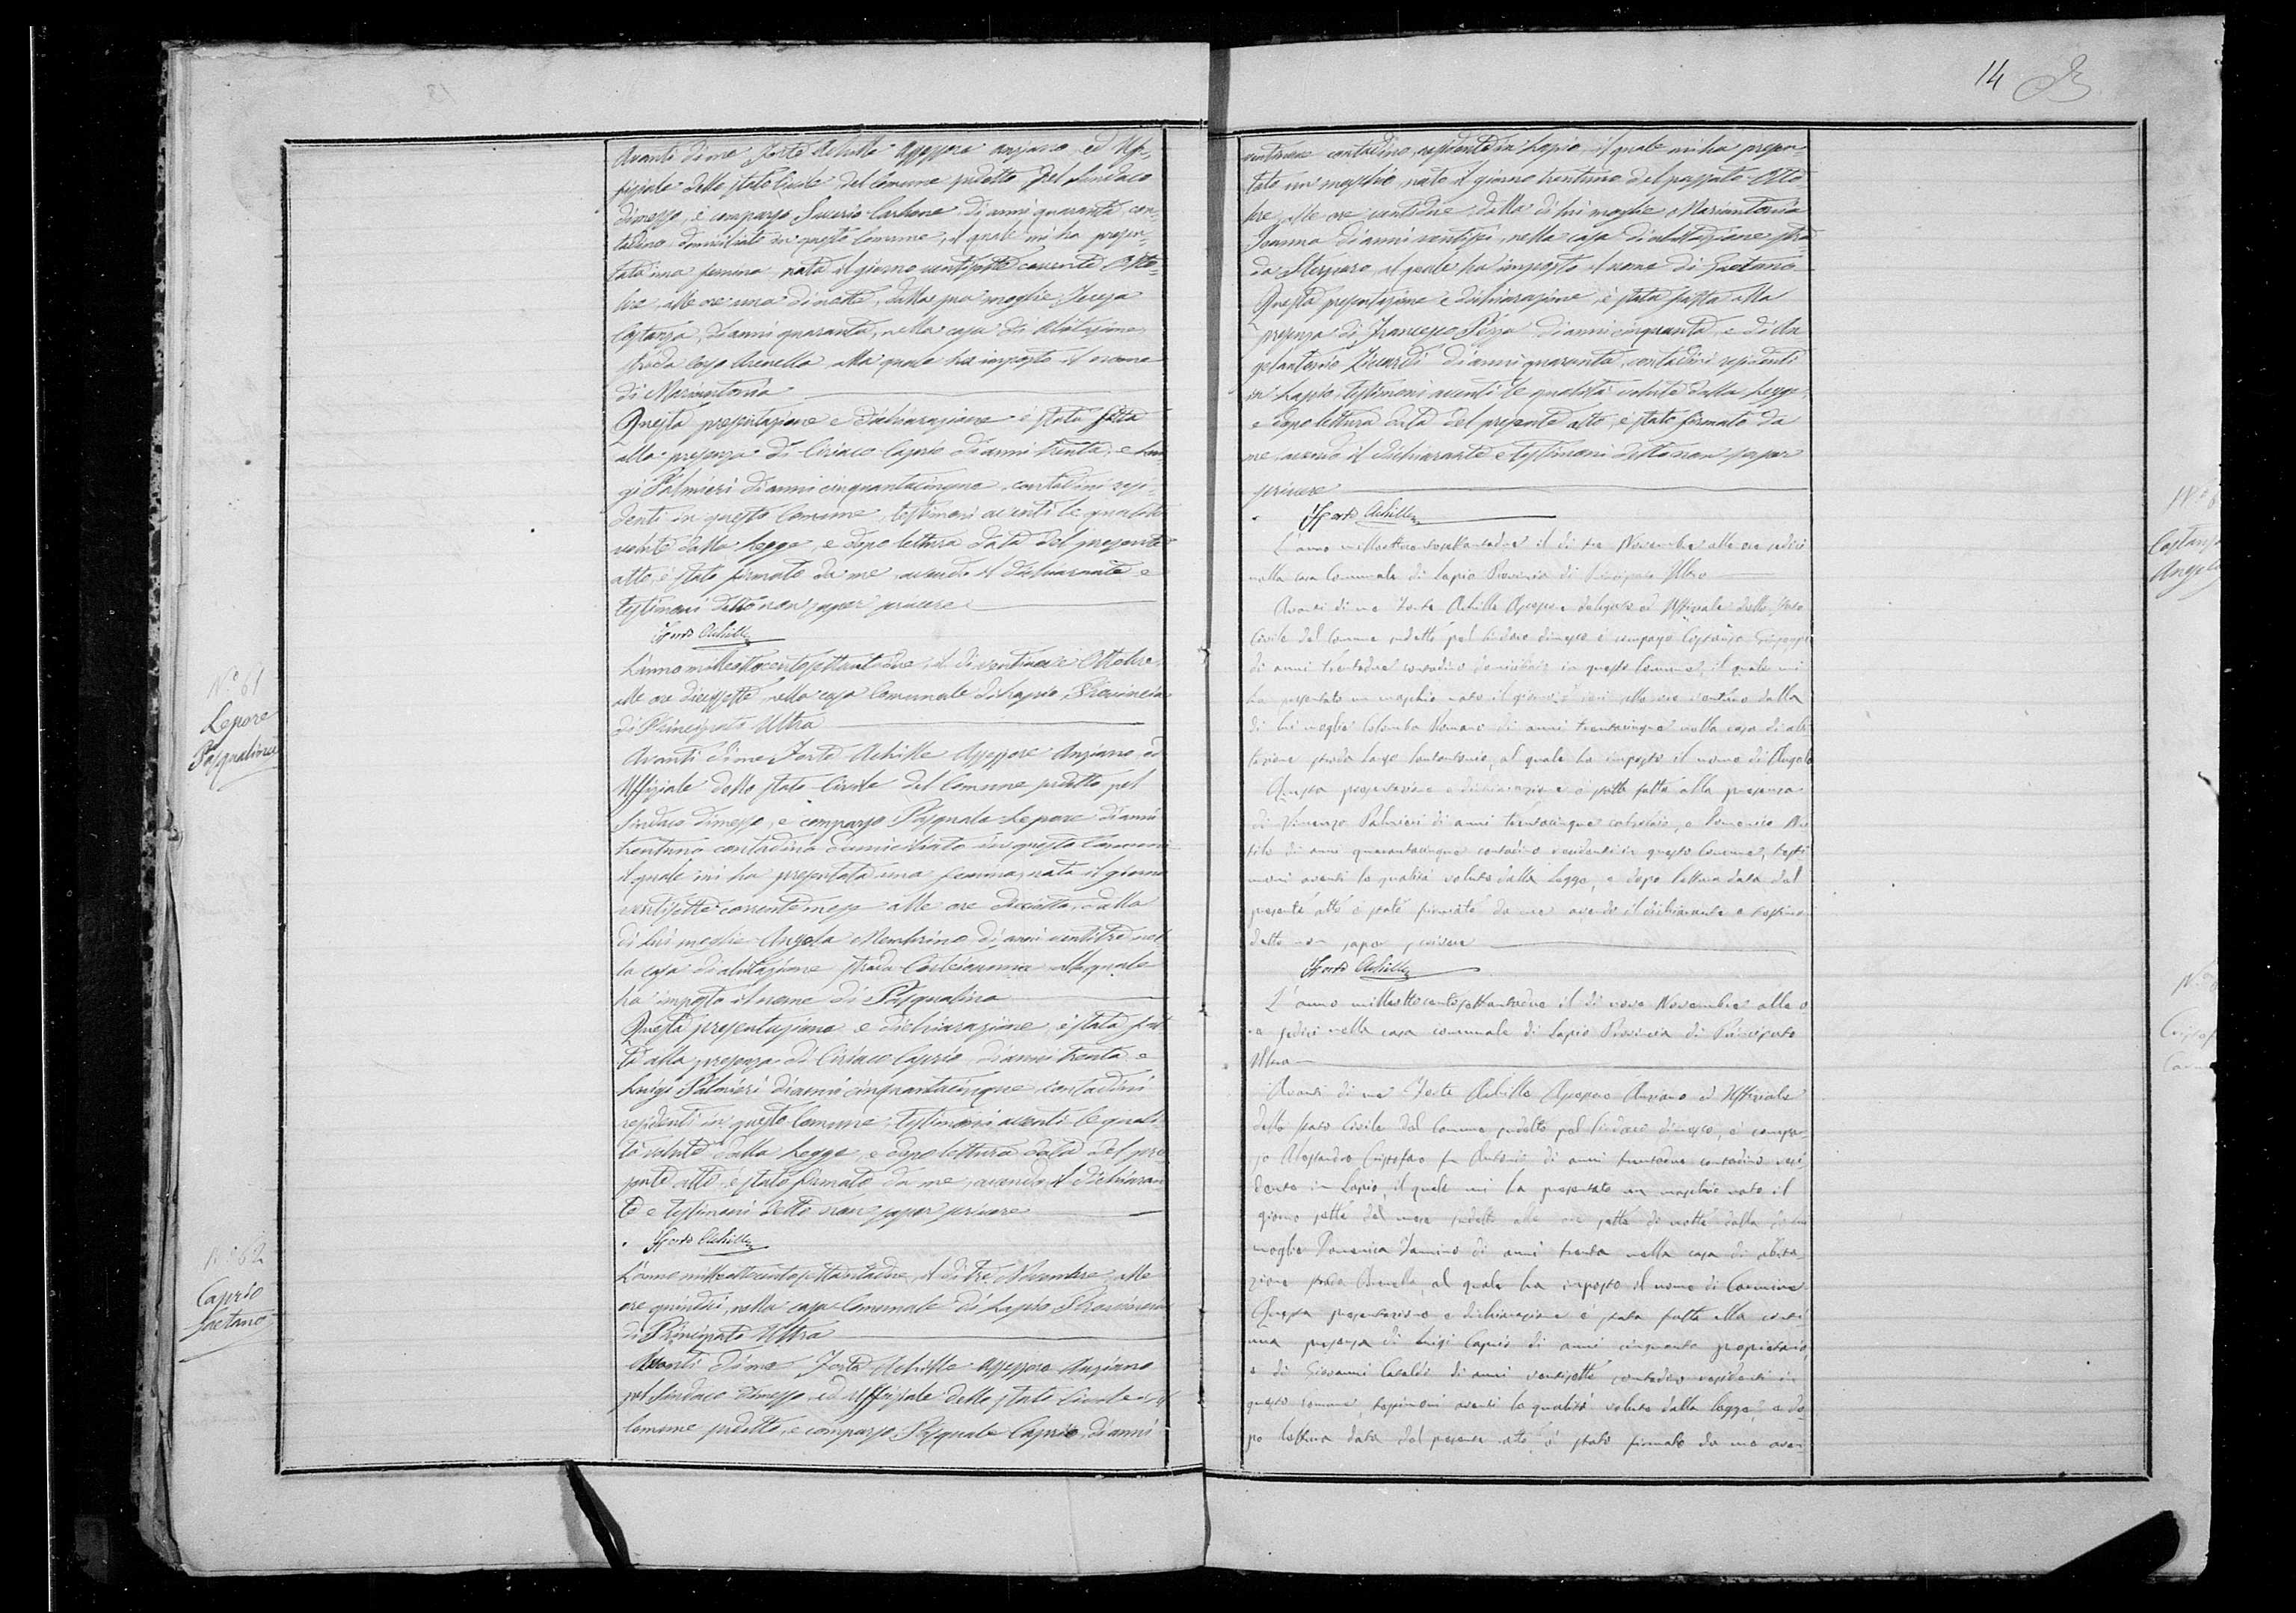 Avanti di me Forte Achille Assessore anziano, ed Uf-
fiziale dello stato Civile del Comune predetto, pel Sindaco
dimesso, è comparso Saverio Carbone di anni quaranta, con-
tadino domiciliato in questo Comune, il quale mi ha presen-
tata una femina nata il giorno ventisette corrente Otto-
bre, alle ore una di notte, dalla sua moglie Teresa
Costanza, di anni quaranta, nella casa di abitazione
strada Arenella, alla quale ha imposto il nome
di Mariantonia
Questa presentazione e dichiarazione è stata fatta
alla presenza di Ciriaco Caprio di anni trenta, e Lui-
gi Palmieri di anni cinquantacinque, contadini resi-
denti in questo Comune, testimoni aventi le qualità
volute dalla Legge, e dopo lettura data del presente
atto, è stato firmato da me, avendo il dichiarante e
testimoni detto non saper scrivere
Forte Achille
N.° 61
Lepore
Pasqualina
L'anno milleottocentosettantadue, il dì ventinove Ottobre
alle ore diecessette, nella casa Comunale di Lapio, Provincia
di Principato Ultra
Avanti di me Forte Achille Assessore Anziano, ed
Uffiziale dello stato Civile del Comune predetto pel
Sindaco dimesso, è comparso Pasquale Lepore di anni
trentuno contadino domiciliato in questo Comune
il quale mi ha presentata una femina, nata il giorno
ventisette corrente mese alle ore diciotto, dalla
di lui moglie Angela Membrino di anni ventitre nel
la casa di abitazione strada alla quale
ha imposto il nome di Pasqualina
Questa presentazione e dichiarazione, è stata fat
ta alla presenza di Ciriaco Caprio di anni trenta e
Luigi Palmieri di anni cinquantacinque contadini
residenti in questo Comune, testimoni aventi le quali
tà volute dalla Legge, e dopo lettura data del pre
sente atto, è stato firmato da me, avendo il dichiaran
te e testimoni detto non saper scrivere
Forte Achille
N.° 62
Caprio
Gaetano
L'anno milleottocentosettantadue, il dì tre Novembre, alle
ore quindici, nella casa Comunale di Lapio Provincia
di Principato Ultra
Avanti di me Forte Achille Assessore Anziano
pel Sindaco dimesso, ed Uffiziale dello stato Civile del
Comune predetto, è comparso Pasquale Caprio, di anni
14
contadino, residente in Lapio, il quale mi ha presen-
tato un maschio, nato il giorno trentuno del passato Otto
bre, alle ore ventidue, dalla di lui moglie Mariantonia
Ioanna di anni ventisei, nella casa di abitazione stra
da al quale ha imposto il nome di Gaetano
Questa presentazione e dichiarazione, è stata fatta alla
presenza di Francesco di anni cinquanta, e di An
gelantonio Ziccardi di anni quaranta, contadini residenti
in Lapio, testimoni aventi le qualità volute dalla Legge,
e dopo lettura data del presente atto, è stato firmato da
me, avendo il dichiarante e testimoni detto non saper
scrivere
Forte Achille
N.°
Costanza
Angelo
L'anno milleottocentosettantadue il dì tre Novembre alle ore sedici
nella casa Comunale di Lapio Provincia di Principato Ultra
Avanti di me Forte Achille Assessore delegato ed Uffiziale dello Stato
Civile del Comune predetto pel Sindaco dimesso è comparso Costanza Giuseppe
di anni trentadue contadino domiciliato in questo Comune, il quale mi
ha presentato un maschio nato il giorno ieri alle ore dalla
di lui moglie Colomba Romano di anni trentacinque nella casa di abi
tazione strada largo Santantonio, al quale ha imposto il nome di Angelo
Questa presentazione e dichiarazione è stata fatta alla presenza
di Vincenzo Palmieri di anni trentacinque calzolaio, e Domenico
di anni quarantacinque contadino residenti in questo Comune, testi
moni aventi le qualità volute dalla legge, e dopo lettura data del
presente atto è stato firmato da me avendo il dichiarante e testimoni
detto non saper scrivere
Forte Achille
N.°
L'anno milleottocentosettantadue il dì nove Novembre alle o
re sedici nella casa comunale di Lapio Provincia di Principato
Ultra
Avanti di me Forte Achille Assessore Anziano ed Uffiziale
dello stato Civile del Comune predetto pel Sindaco dimesso, è compar-
so Alessandro Cristofaro fu Antonio di anni trentadue contadino resi
dente in Lapio, il quale mi ha presentato un maschio nato il
giorno sette del mese sudetto alle ore sette di notte dalla
moglie Domenica Iannino di anni trenta nella casa di abita
zione strada Arenella, al quale ha imposto il nome di Carmine
Questa presentazione e dichiarazione è stata fatta alla
presenza di Luigi Caprio di anni cinquanta proprietario,
e di Giovanni Cataldo di anni ventisette contadino residenti in
questo comune, testimoni aventi le qualità volute dalla legge, e do-
po lettura data del presente atto è stato firmato da me aven